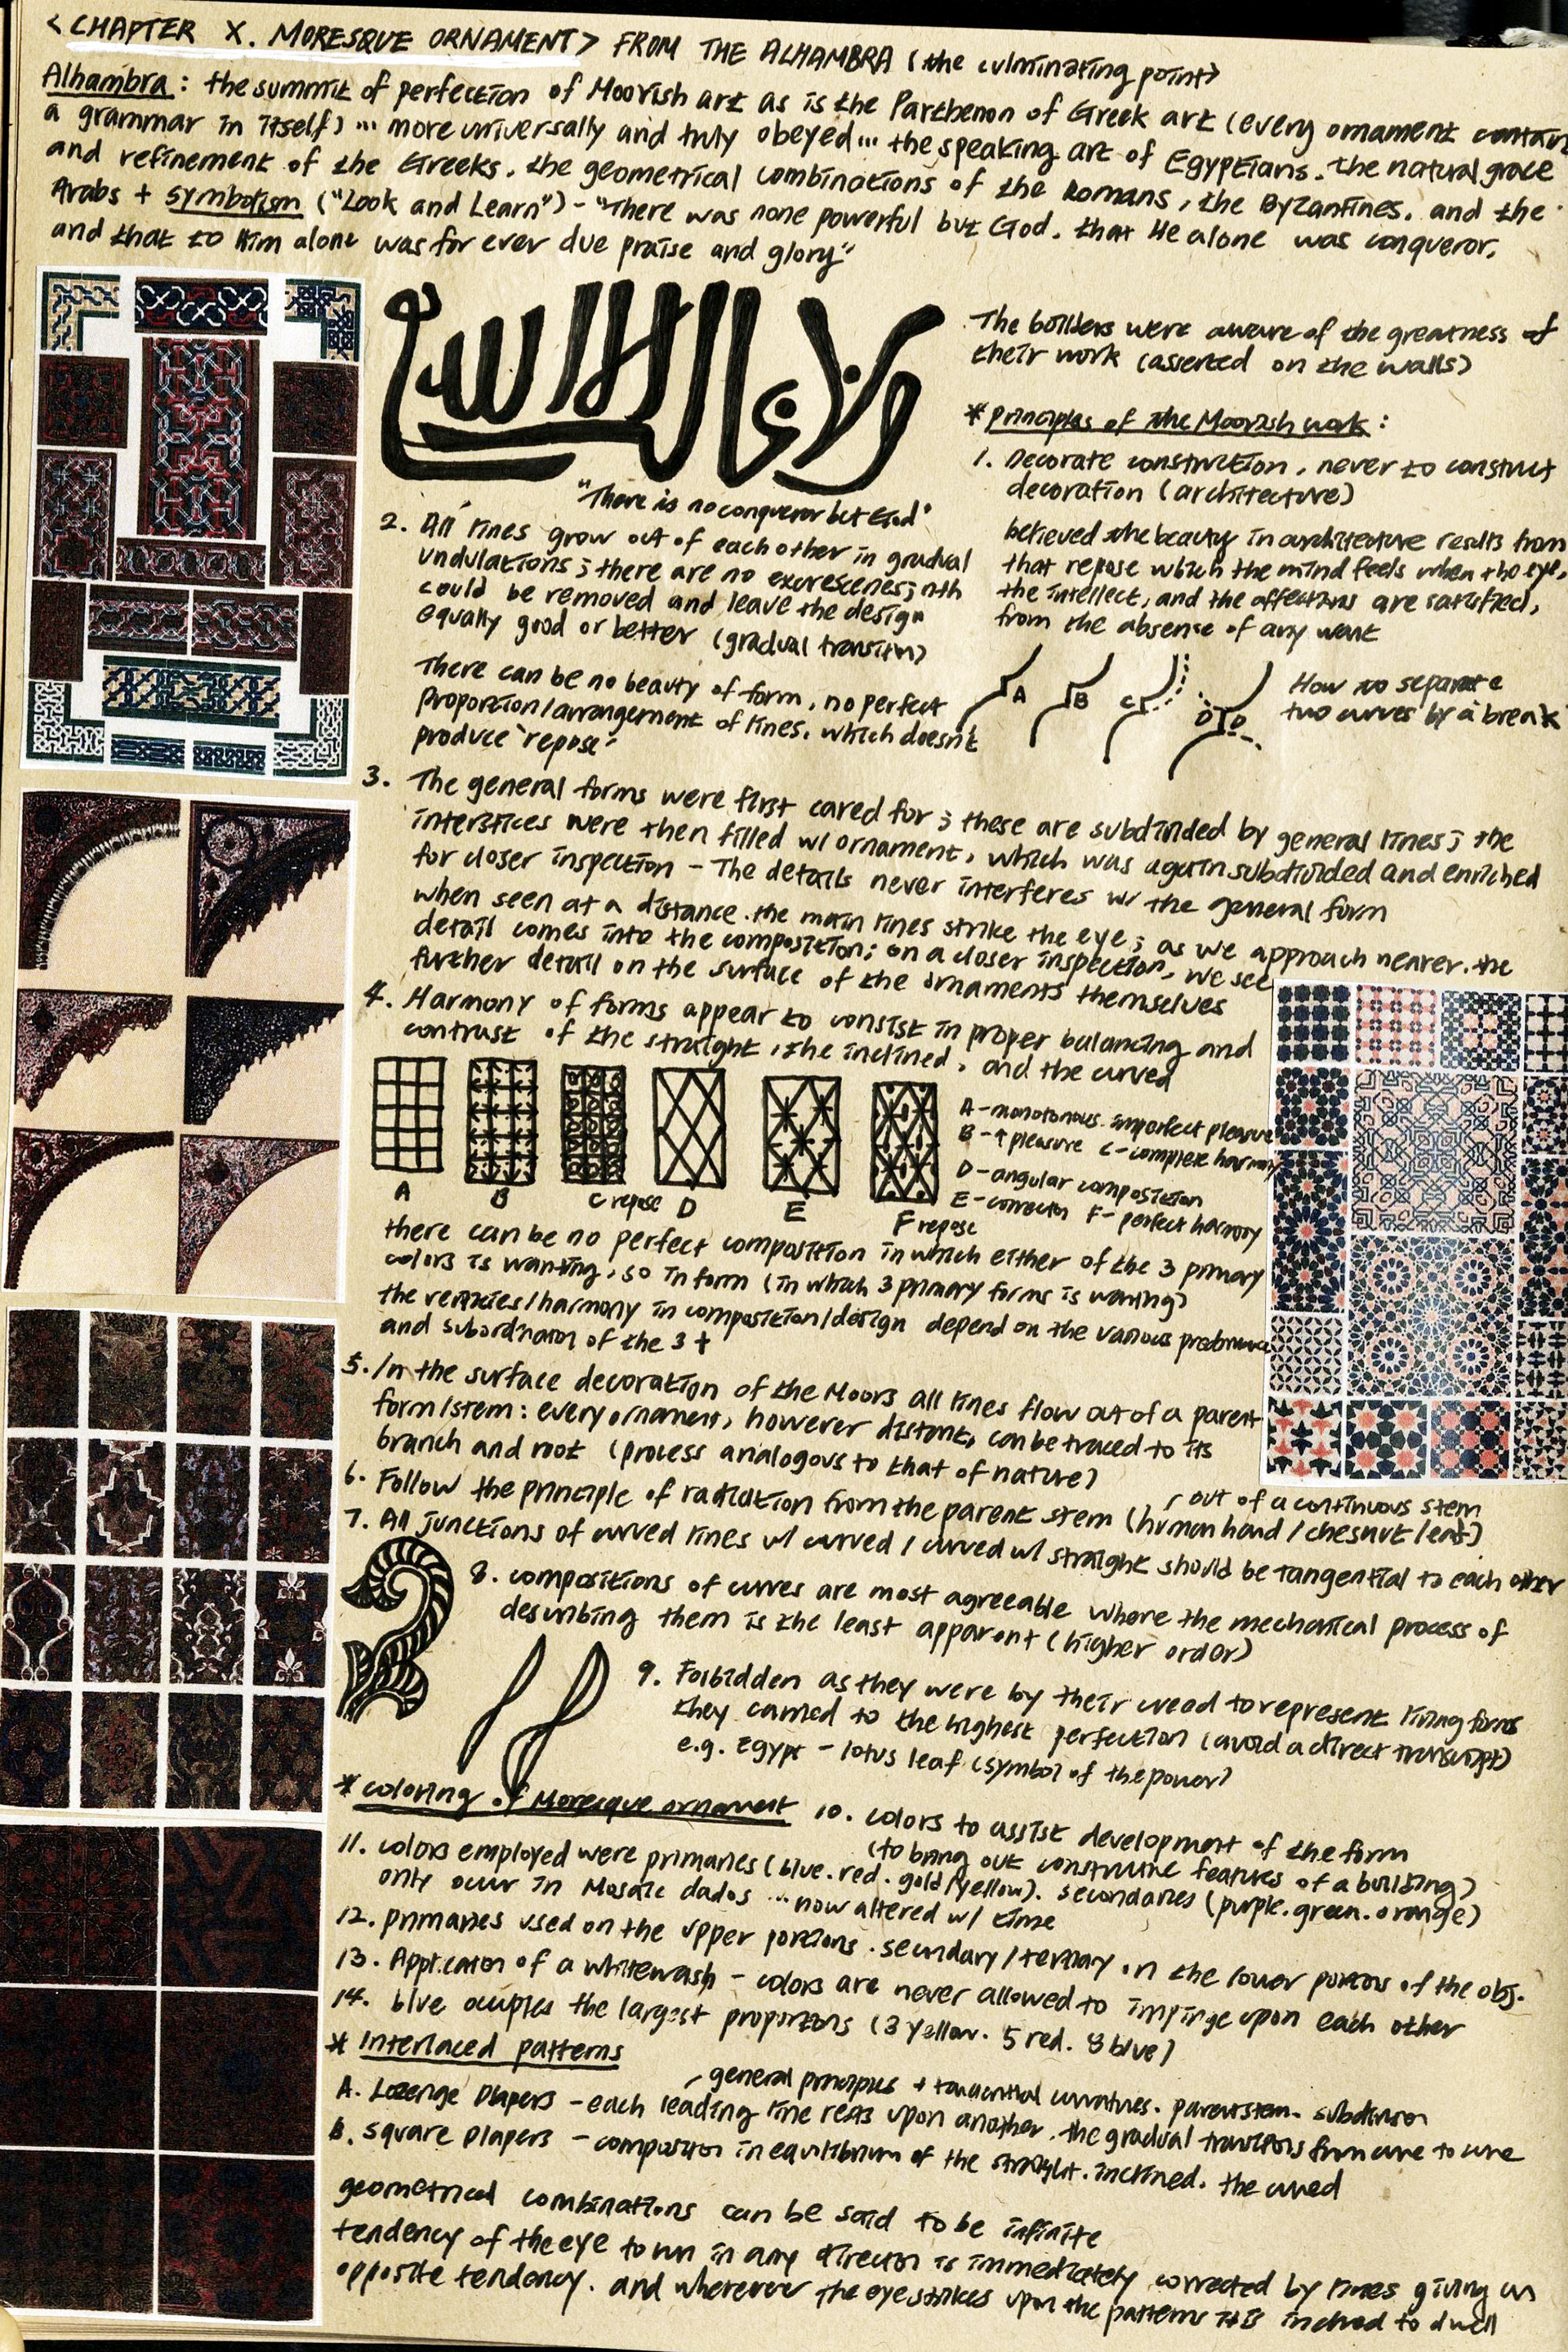 <CHAPTER X. MORESQUE ORNAMENT> FROM THE ALHAMBRA (the culminating point)
Alhambra: the summit of perfection of Moorish art as is the Parthenon of Greek art (every ornament contain
a grammar in itself) ... more universally and truly obeyed ... the speaking art of Egyptians. The natural grace
and refinement of the Greeks. the geometrical combinations of the Romans, the Byzantines. and the
Arabs + symbolism ("Look and Learn") - "There was none powerful but God. that He alone was conqueror.
and that to Him alone was for ever due praise and glory"
"There is no conqueror but God"
The builders were aware of the greatness of
their work (asserted on the walls)
* principles of the Moorish work:
1. Decorate construction, never to construct
decoration (architecture)
believed the beauty in architecture results from
that repose which the mind feels when the eye,
the intellect, and the affections are satisfied,
from the absense of any want
A B C D D
How to separate
two curves by a break
2. All lines grow out of each other in gradual
undulations; there are no excrescenes; nth
could be removed and leave the design
equally good or better (gradual transitn)
There can be no beauty of form, no perfect
proportion/arrangement of lines, which doesn't
produce "repose"
3. The general forms were first cared for; these are subdivided by general lines; the
interstices were then filled w/ ornament, which was again subdivided and enriched
for closer inspection - The details never interferes w/ the general form
when seen at a distance. the main lines strike the eye; as we approach nearer. the
detail comes into the composition; on a closer inspection, we see
further detail on the surface of the ornaments themselves
4. Harmony of forms appear to consist in proper balancing and
contrast of the straight, the inclined, and the curved
A B C repose D E F repose
A - monotonous. imperfect pleasure
B - ↑ pleasure C - complete harmony
D - angular composition
E - correctn F - perfect harmony
there can be no perfect composition in which either of the 3 primary
colors is wanting, so in form (in which 3 primary forms is wanting)
the varieties/harmony in composition/design depend on the various
and subordination of the 3 +
5. In the surface decoration of the Moors all lines flow out of a parent
form/stem: every ornament, however distant, can be traced to its
branch and root (process analogous to that of nature)
6. Follow the principle of radiation from the parent stem (human hand / chesnut leaf)
out of a continuous stem
7. All junctions of curved lines w/ curved / curved w/ straight should be tangential to each other
8. compositions of curves are most agreeable where the mechanical process of
describing them is the least apparent (higher order)
9. Forbidden as they were by their creed to represent living forms
they carried to the highest perfection (avoid a direct transcript)
e.g. Egypt - lotus leaf (symbol of the power)
* coloring of Moresque ornament
10. colors to assist development of the form
(to bring out constructive features of a building)
11. colors employed were primaries (blue. red. gold/yellow). secondaries (purple. green. orange)
only occur in Mosaic dados ... now altered w/ time
12. primaries used on the upper portions. secondary / tertiary on the lower portions of the obj.
13. Application of a whitewash - colors are never allowed to impinge upon each other
14. blue occupies the largest proportons (3 yellow. 5 red. 8 blue)
* Interlaced patterns
general principles + tangential curvatures. parent stem. subdivison
A. Lozenge Diapers - each leading line rests upon another. the gradual transitions from curve to curve
B. square Diapers - composition in equilibrium of the straight. inclined. the curved
geometrical combinations can be said to be infinite
tendency of the eye to run in any direction is immediately corrected by lines giving an
opposite tendency. and wherever the eye strikes upon the patterns it is inclined to dwell